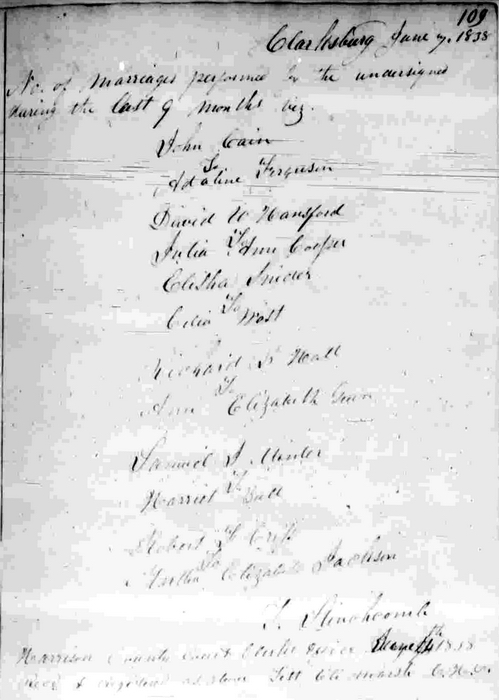 109
Clarksburg June 7. 1838
No. of Marriages performed by the undersigned
during the last 9 months viz.
John Cain
To
Adaline Ferguson
David W Hansford
To
Julia Ann Cooper
Elisha Snider
To
Celia West
Richard Hall
To
Ann Elizabeth
Samuel J. Minter
To
Harriet Ball
Robert
To
Elizabeth Jackson
Stinchcomb
Harrison County Court Clerks 1838